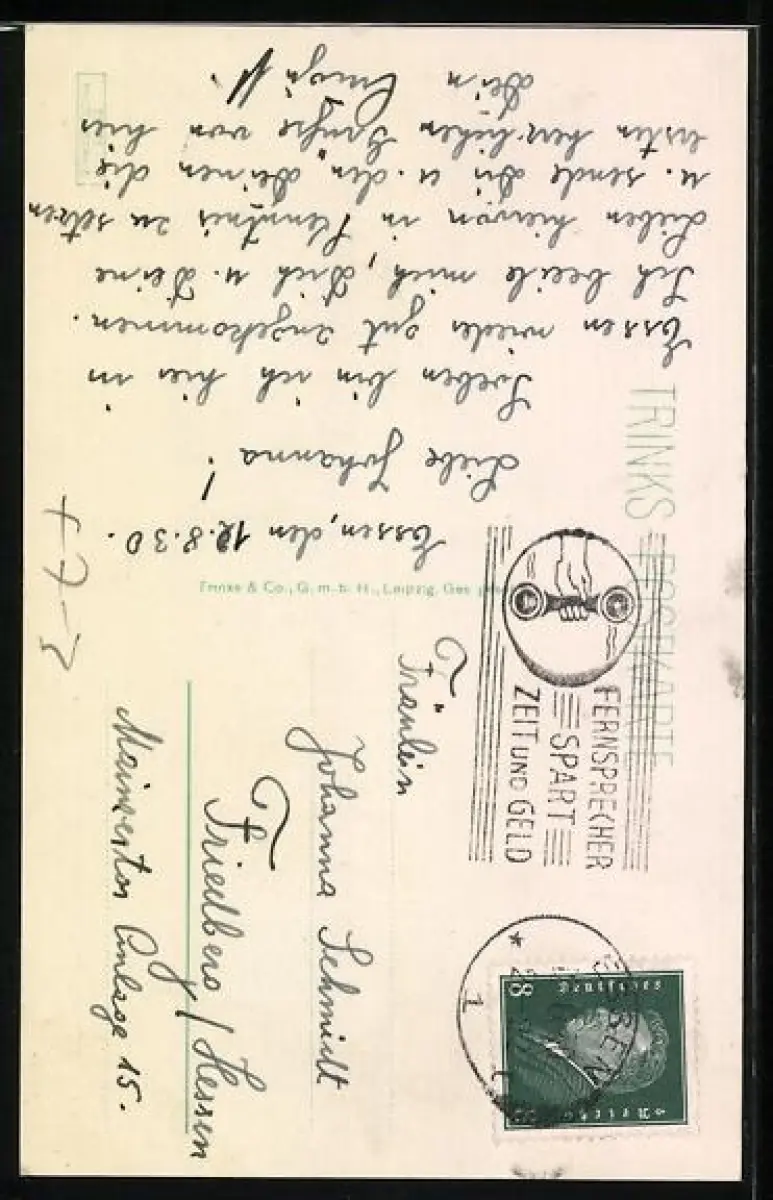 Essen, den 12.8.30.
Liebe Johanna!
Soeben bin ich hier in
Essen wieder gut angekommen.
Ich beeile mich, Dich u. Deine
Lieben hiervon in Kenntnis zu setzen
u. sende Dir u. den "Deinen" die
ersten herzlichen Grüße von hier
Dein
TRINKS POSTKARTE
Trinks & Co., G. m. b. H., Leipzig. Ges.
FERNSPRECHER
SPART
ZEIT UND GELD
ESSEN
* 1
Deutsches
Reich
8 8
Fräulein
Johanna Schmidt
Friedberg / Hessen
Mainzertor Anlage 15.
+7-3